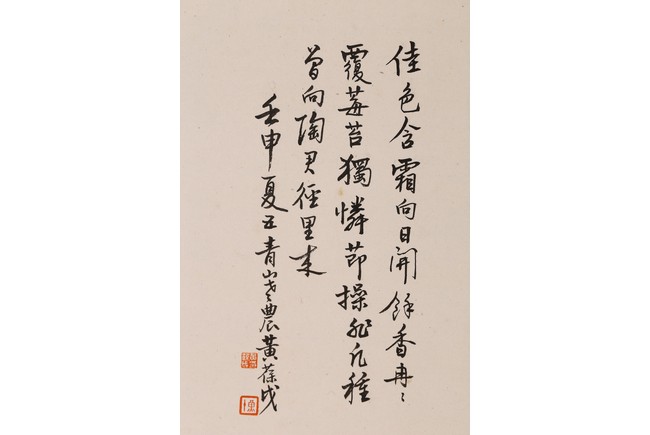 佳色含霜向日開餘香冉〻
覆莓苔獨憐節操非凡種
曾向陶君徑里來
壬申夏五青山老農黃葆戉